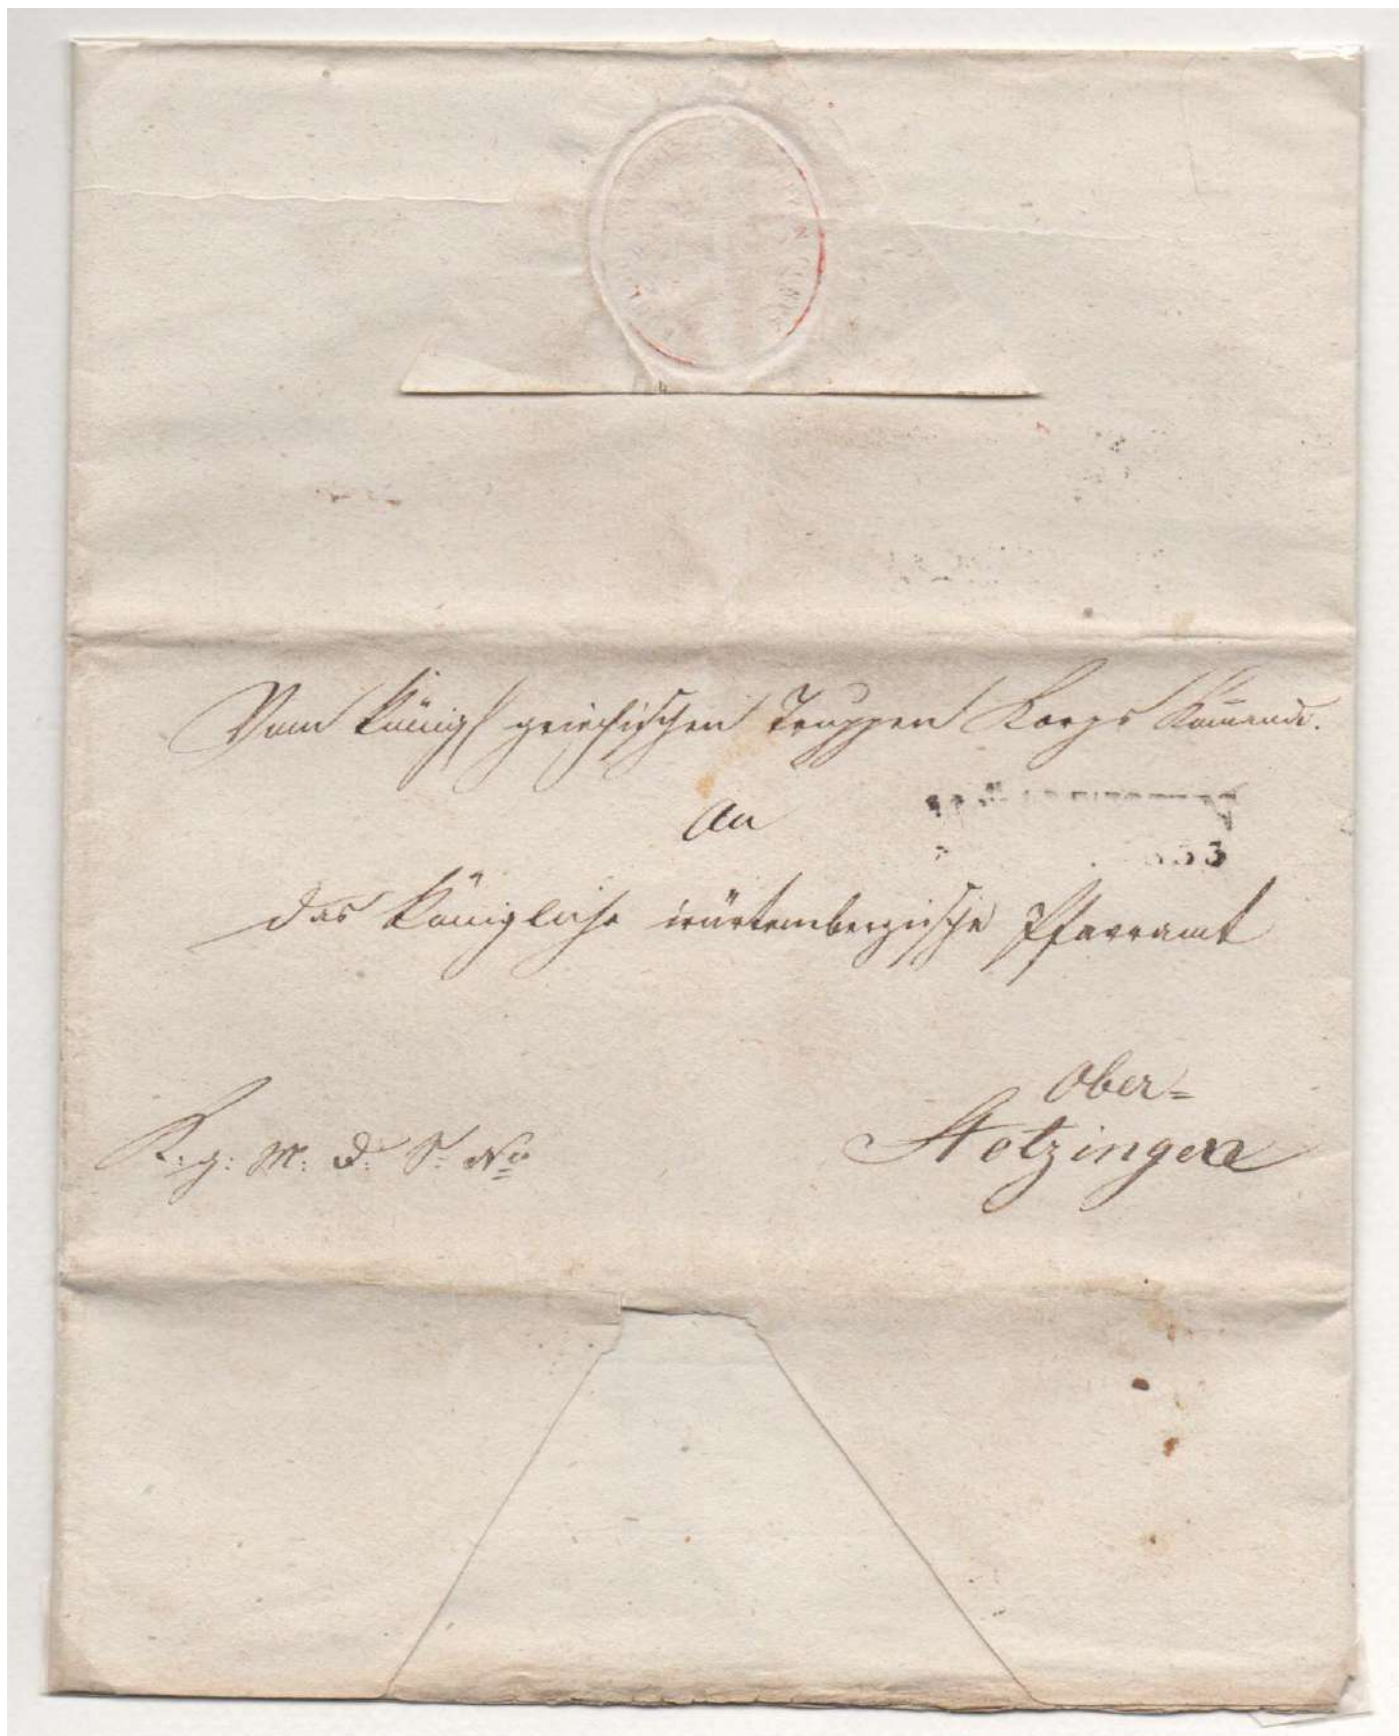 Vom königl griechischen Truppen Korps Komando.
An
das Königliche würtembergische Pfarramt
Ober=
Stotzingen
K. g. M. D. S. No